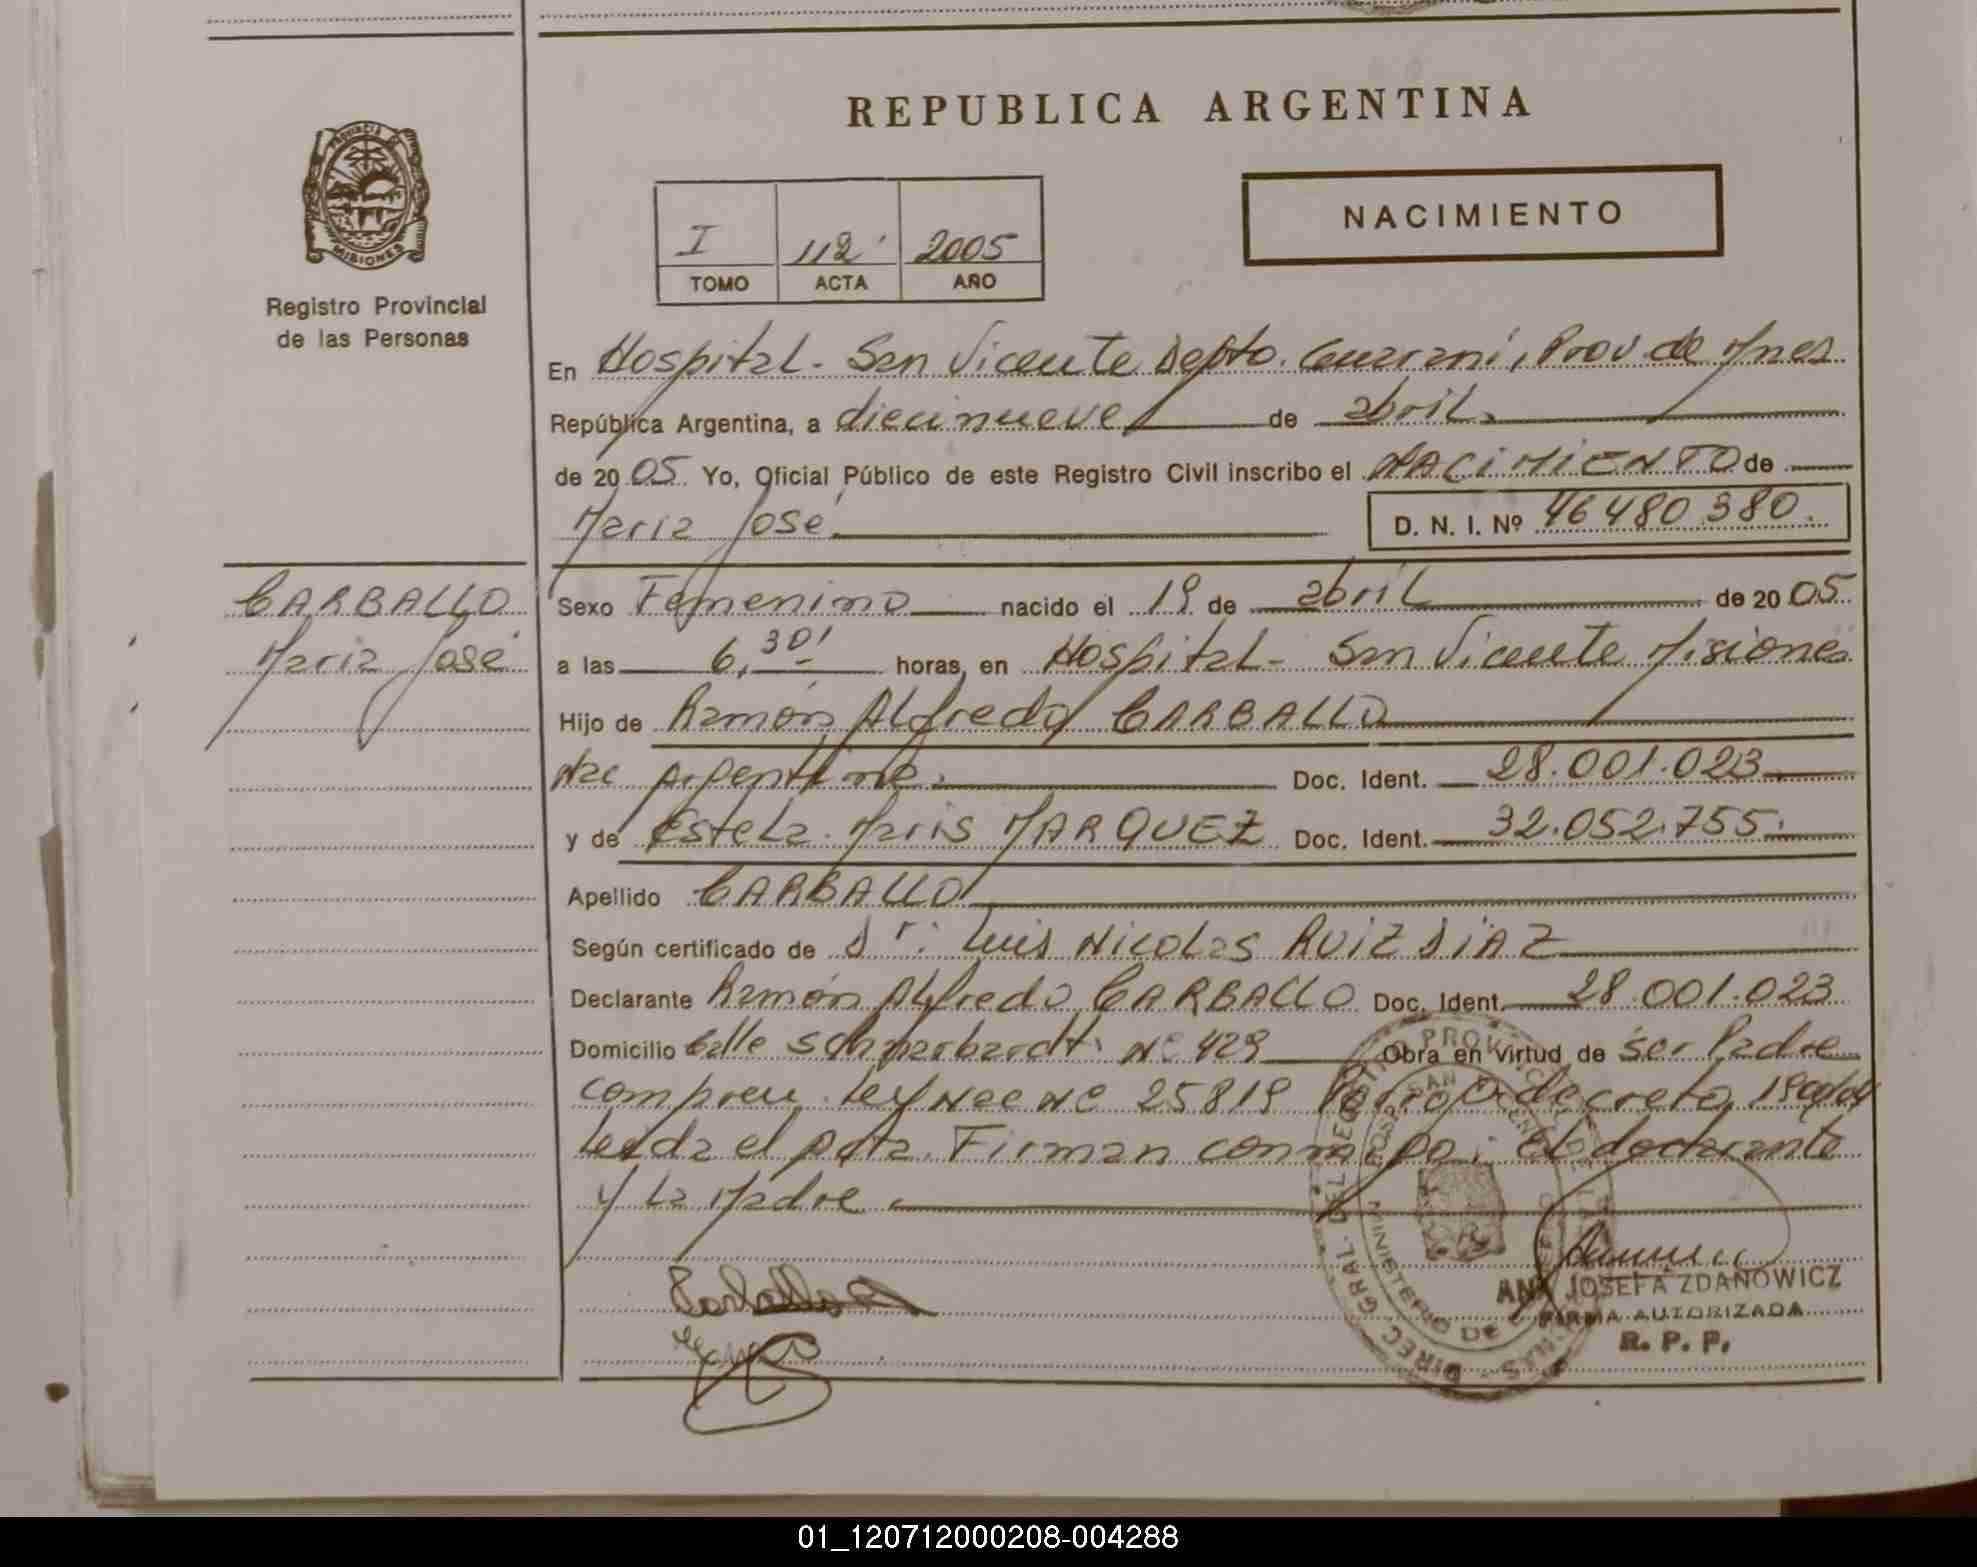 REPUBLICA ARGENTINA
PROVINCIA DE
MISIONES
Registro Provincial
de las Personas
NACIMIENTO
I 112 2005
TOMO ACTA AÑO
En Hospital - San Vicente Depto. Guaraní, Prov. de Mnes
República Argentina, a diecinueve de abril
de 2005 Yo, Oficial Público de este Registro Civil inscribo el NACIMIENTO de
María José D. N. I. Nº 46480380.
CARBALLO
María José
Sexo Femenino nacido el 19 de abril de 2005
a las 6,30' horas, en Hospital - San Vicente Misiones
Hijo de Ramón Alfredo CARBALLO
Nac Argentina Doc. Ident. 28.001.023
y de Estela Maris MARQUEZ Doc. Ident. 32.052.755
Apellido CARBALLO
Según certificado de Dr. Luis Nicolas RUIZ DIAZ
Declarante Ramón Alfredo CARBALLO Doc. Ident. 28.001.023
Domicilio Calle Nº 429 Obra en virtud de ser Padre
Ley Nac Nº 25819 decreto
Leida el Acta. Firman conmigo: El declarante
y La Madre
ANA JOSEFA ZDANOWICZ
FIRMA AUTORIZADA
R. P. P.
01_120712000208-004288